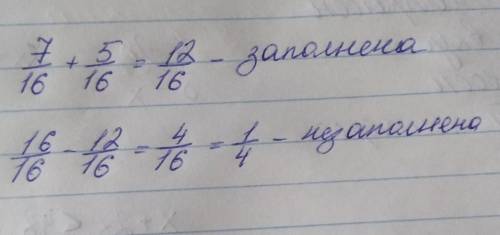 7/16 + 5/16 = 12/16 - заполнена
16/16 - 12/16 = 4/16 = 1/4 - незаполнена